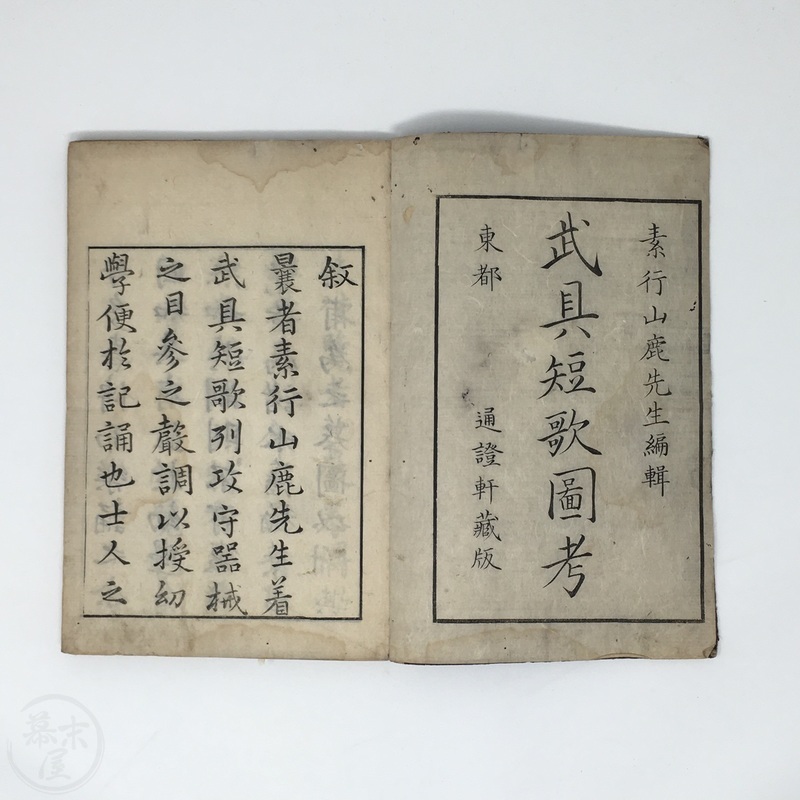 素行山鹿先生編輯
武具短歌圖考
東都 通證軒藏版
叙
曩者素行山鹿先生着
武具短歌列攻守器械
之目參之聲調以授幼
學便於記誦也士人之
幕末屋